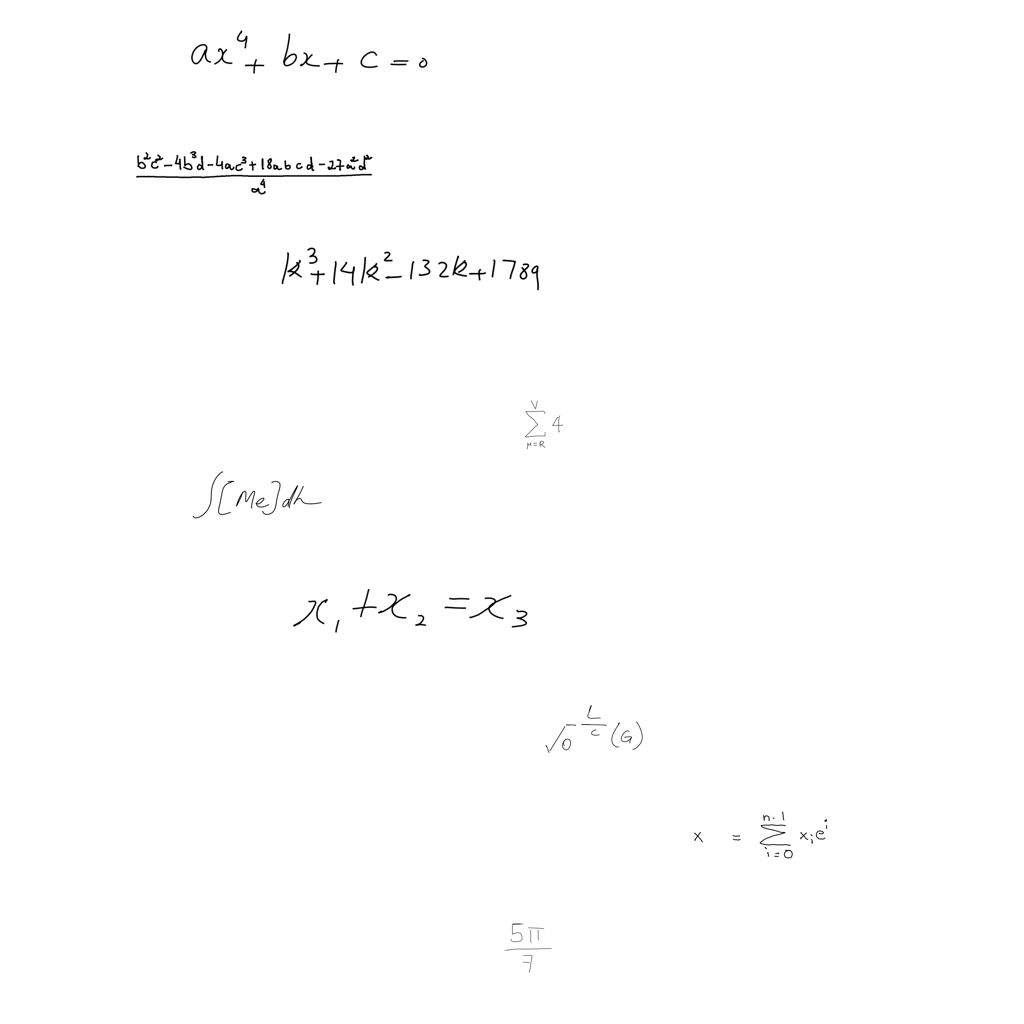 ax^4 + bx + c = 0
\frac{b^2c^2-4b^3d-4ac^3+18abcd-27a^2d^2}{a^4}
k^3+14k^2-132k+1789
\sum_{\mu=R}^{V} 4
\int [Me] dh
x_1 + x_2 = x_3
\sqrt{0}^{\frac{L}{c}}(G)
x = \sum_{i=0}^{n-1} x_i e^i
\frac{5\pi}{7}